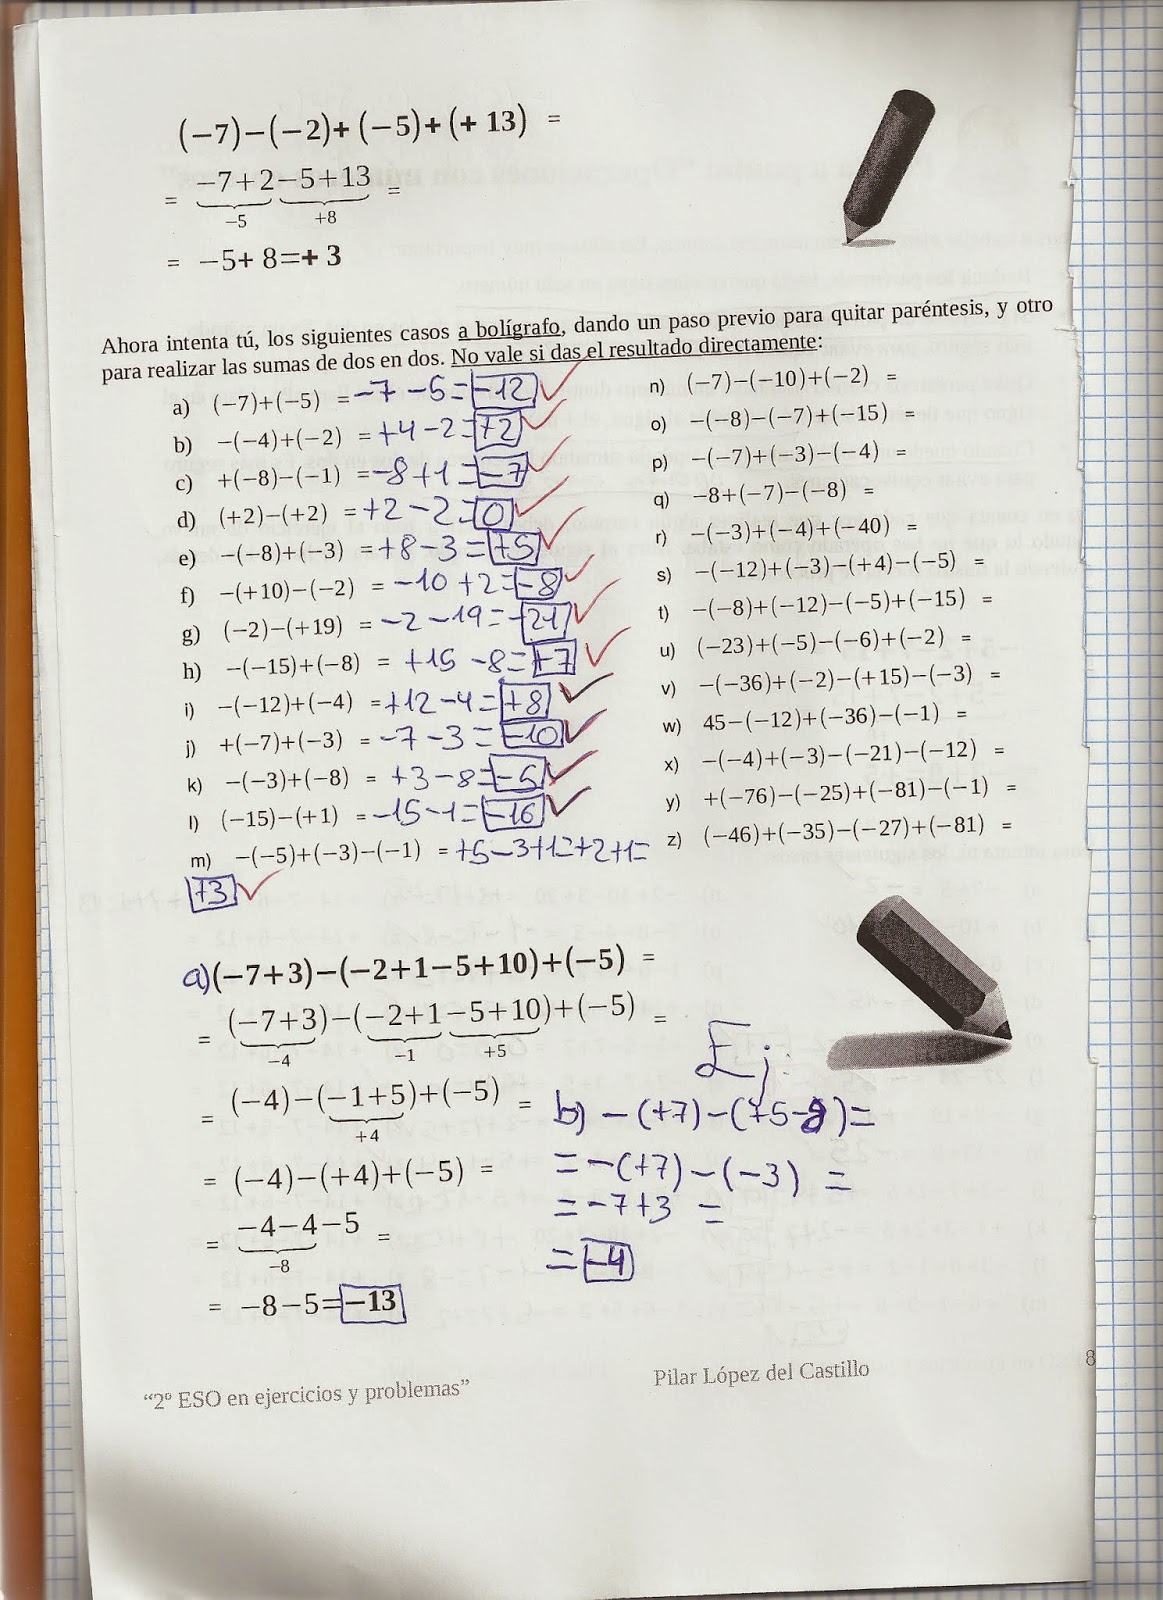 (−7)−(−2)+(−5)+(+ 13) =
= −7+2−5+13 =
−5 +8
= −5+ 8=+ 3
Ahora intenta tú, los siguientes casos a bolígrafo, dando un paso previo para quitar paréntesis, y otro
para realizar las sumas de dos en dos. No vale si das el resultado directamente:
a) (−7)+(−5) = −7 −5 = −12
b) −(−4)+(−2) = +4 −2 = +2
c) +(−8)−(−1) = −8 +1 = −7
d) (+2)−(+2) = +2 −2 = 0
e) −(−8)+(−3) = +8 −3 = +5
f) −(+10)−(−2) = −10 +2 = −8
g) (−2)−(+19) = −2 −19 = −21
h) −(−15)+(−8) = +15 −8 = +7
i) −(−12)+(−4) = +12 −4 = +8
j) +(−7)+(−3) = −7 −3 = −10
k) −(−3)+(−8) = +3 −8 = −5
l) (−15)−(+1) = −15 −1 = −16
m) −(−5)+(−3)−(−1) = +5−3+1=+2+1=
+3
n) (−7)−(−10)+(−2) =
o) −(−8)−(−7)+(−15) =
p) −(−7)+(−3)−(−4) =
q) −8+(−7)−(−8) =
r) −(−3)+(−4)+(−40) =
s) −(−12)+(−3)−(+4)−(−5) =
t) −(−8)+(−12)−(−5)+(−15) =
u) (−23)+(−5)−(−6)+(−2) =
v) −(−36)+(−2)−(+15)−(−3) =
w) 45−(−12)+(−36)−(−1) =
x) −(−4)+(−3)−(−21)−(−12) =
y) +(−76)−(−25)+(−81)−(−1) =
z) (−46)+(−35)−(−27)+(−81) =
a)(−7+3)−(−2+1−5+10)+(−5) =
= (−7+3)−(−2+1−5+10)+(−5) =
−4 −1 +5
= (−4)−(−1+5)+(−5) =
+4
= (−4)−(+4)+(−5) =
= −4−4−5 =
−8
= −8−5=−13
Ej:
b) −(+7)−(+5−8)=
= −(+7)−(−3) =
= −7+3 =
= −4
“2º ESO en ejercicios y problemas”
Pilar López del Castillo
8